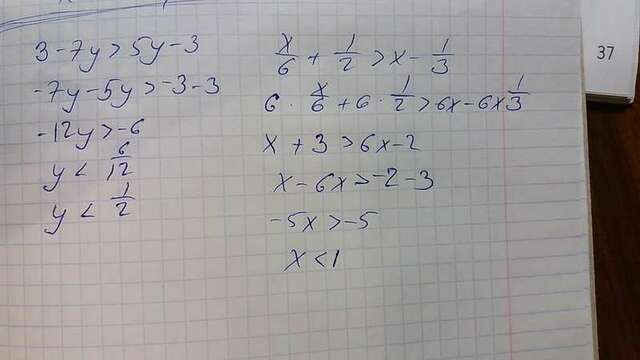 3 - 7y > 5y - 3
-7y - 5y > -3 - 3
-12y > -6
y < 6/12
y < 1/2
x/6 + 1/2 > x - 1/3
6 · x/6 + 6 · 1/2 > 6x - 6 x 1/3
x + 3 > 6x - 2
x - 6x > -2 - 3
-5x > -5
x < 1
37